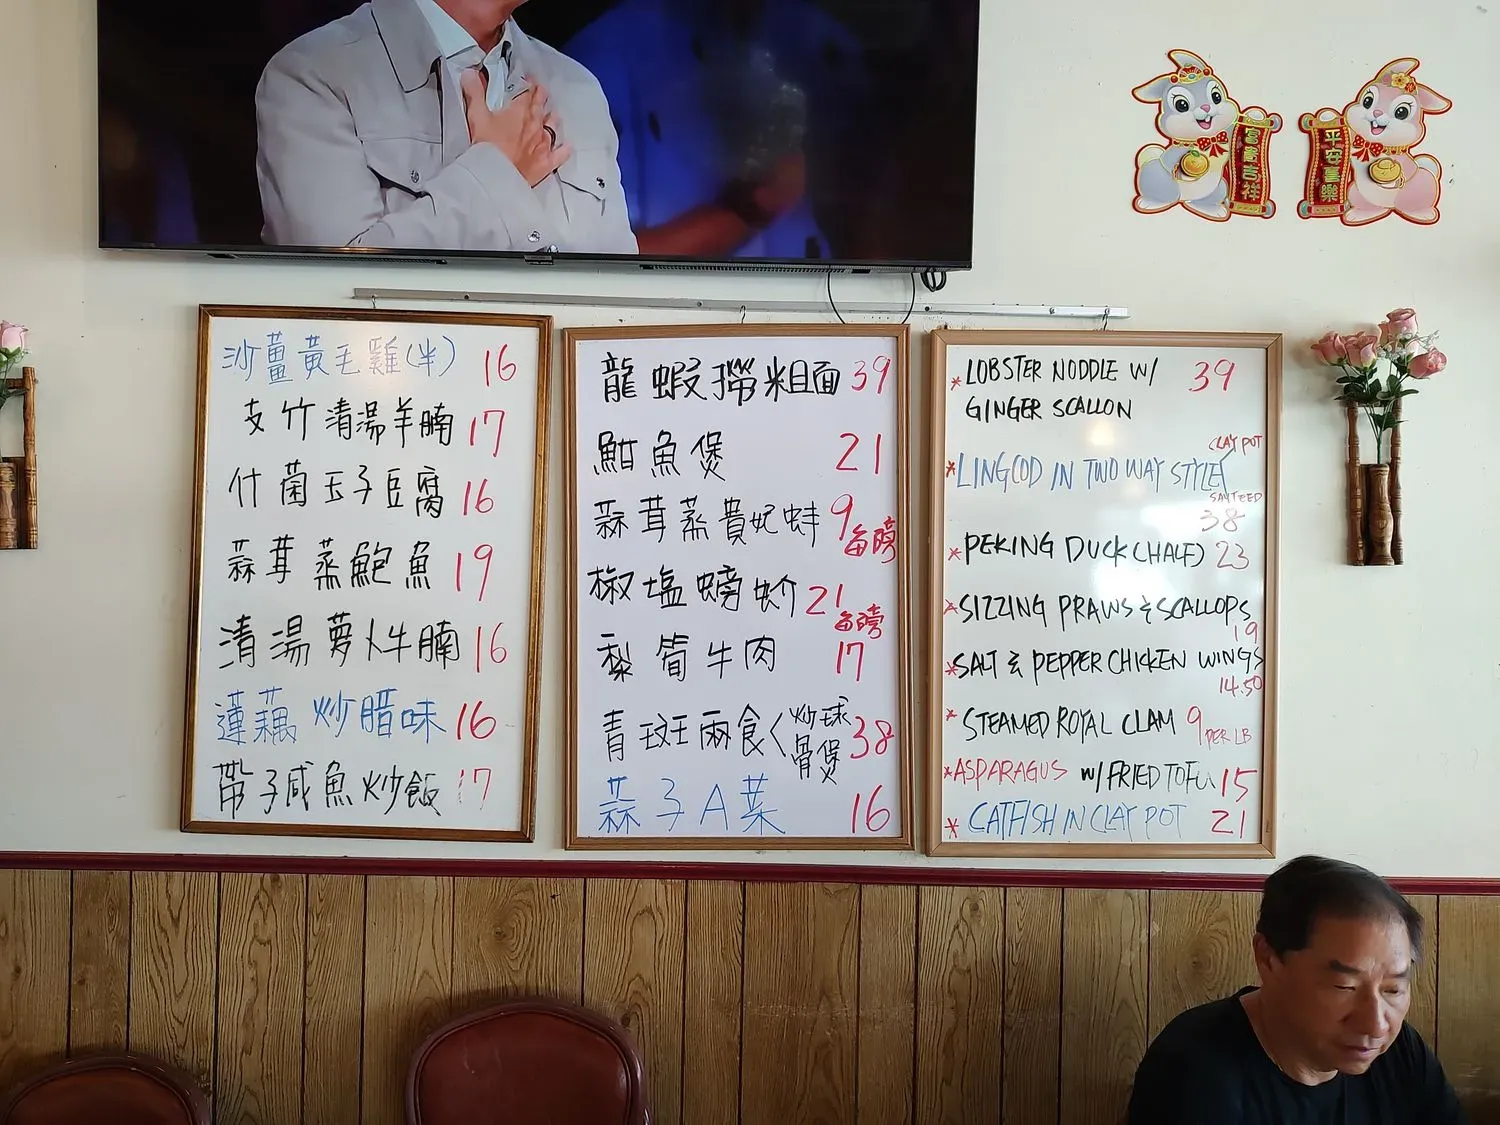 富貴吉祥
平安喜樂
沙薑黃毛雞(半) 16
支竹清湯羊腩 17
什菌玉子豆腐 16
蒜茸蒸鮑魚 19
清湯萝卜牛腩 16
蓮藕炒腊味 16
帶子咸魚炒飯 17
龍蝦撈粗面 39
魽魚煲 21
蒜茸蒸貴妃蚌 9
每磅
椒塩螃蚧 21
每磅
梨筍牛肉 17
青斑兩食〈炒球 38
骨煲
蒜子A菜 16
* LOBSTER NODDLE W/ 39
GINGER SCALLON
CLAY POT
*LINGCOD IN TWO WAY STYLE
SAUTEED
38
* PEKING DUCK (HALF) 23
*SIZZING PRAWS & SCALLOPS
19
*SALT & PEPPER CHICKEN WINGS
14.50
* STEAMED ROYAL CLAM 9 PER LB
*ASPARAGUS W/FRIED TOFU 15
* CATFISH IN CLAY POT 21